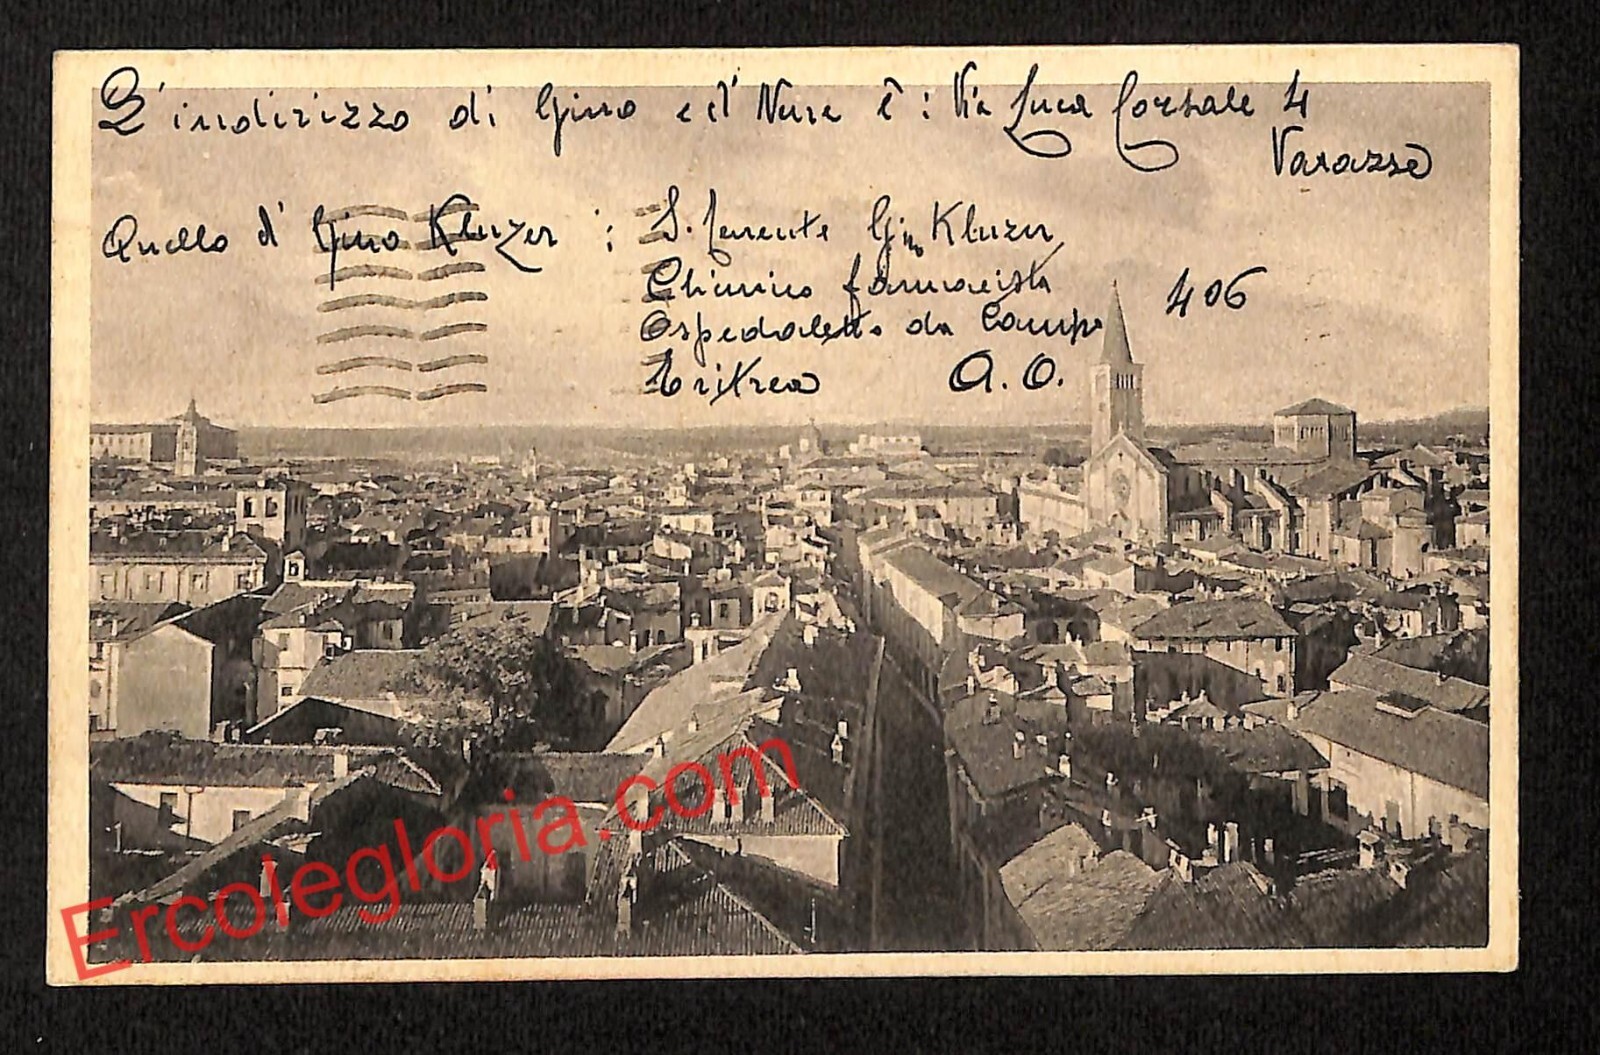 L'indirizzo di Gino e d' Nura è: Via Luca Corsale 4
Varazze
Quello d' Gino Kluzer : S. Tenente Gino Kluzer
Chimico farmacista
Ospedaletto da Campo 406
Eritrea A. O.
Ercolegloria.com